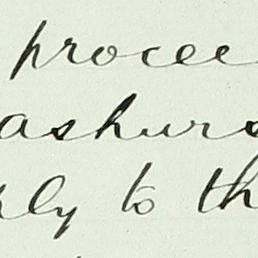 procee
ashurs
ly to th